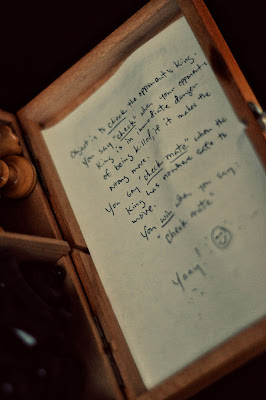 Object is to check the opponant's King.
You say "check" when your opponant's
King is in immediate danger
of being killed, if it makes the
wrong move.
You say "check mate" when the
King has nowhere safe to
move.
You win when you say
"check mate"
Yaay!